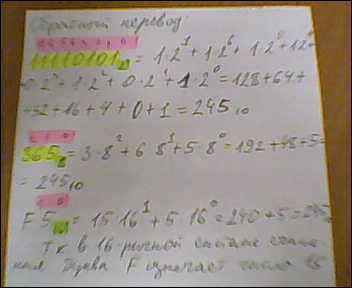 Обратный перевод:
7 6 5 4 3 2 1 0
11110101₂ = 1·2⁷+1·2⁶+1·2⁵+1·2⁴+
+0·2³+1·2²+0·2¹+1·2⁰=128+64+
+32+16+4+0+1=245₁₀
2 1 0
365₈ = 3·8²+6·8¹+5·8⁰=192+48+5=
= 245₁₀
1 0
F5₁₆ = 15·16¹+5·16⁰=240+5=245
Тк в 16-ричной системе
буква F означает число 15